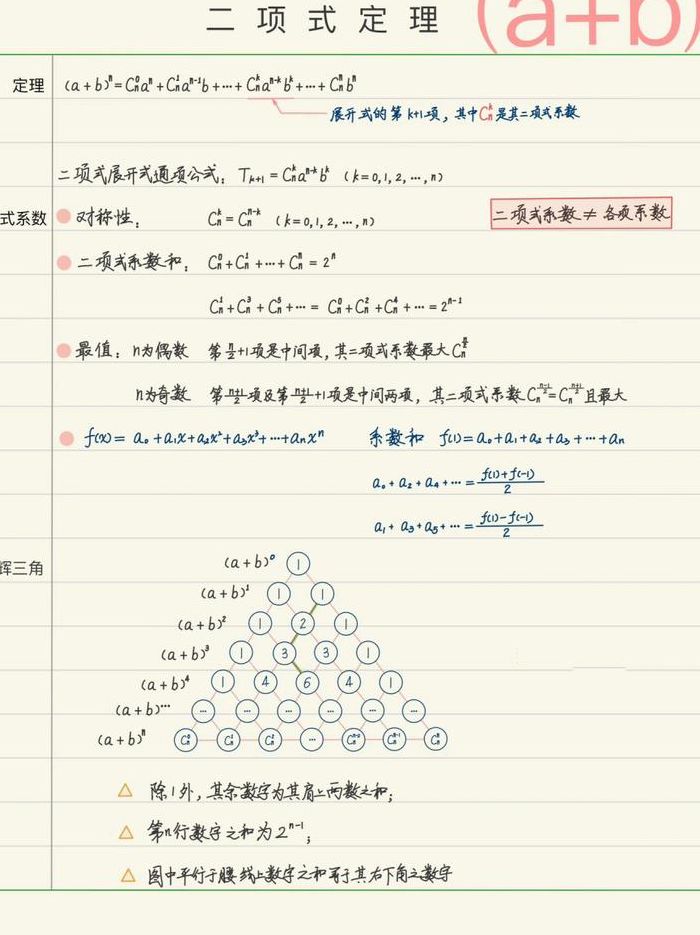 二项式定理 (a+b)
定理 (a+b)ⁿ=Cₙ⁰aⁿ+Cₙ¹aⁿ⁻¹b+⋯+Cₙᵏaⁿ⁻ᵏbᵏ+⋯+Cₙⁿbⁿ
展开式的第k+1项，其中Cₙᵏ是其二项式系数
二项式展开式通项公式：Tₖ₊₁=Cₙᵏaⁿ⁻ᵏbᵏ (k=0,1,2,⋯,n)
式系数 对称性： Cₙᵏ=Cₙⁿ⁻ᵏ (k=0,1,2,⋯,n) 二项式系数≠各项系数
二项式系数和： Cₙ⁰+Cₙ¹+⋯+Cₙⁿ=2ⁿ
Cₙ¹+Cₙ³+Cₙ⁵+⋯=Cₙ⁰+Cₙ²+Cₙ⁴+⋯=2ⁿ⁻¹
最值：n为偶数 第n/2+1项是中间项，其二项式系数最大Cₙ^(n/2)
n为奇数 第(n+1)/2项及第(n+1)/2+1项是中间两项，其二项式系数Cₙ^((n-1)/2)=Cₙ^((n+1)/2)且最大
f(x)=a₀+a₁x+a₂x²+a₃x³+⋯+aₙxⁿ 系数和 f(1)=a₀+a₁+a₂+a₃+⋯+aₙ
a₀+a₂+a₄+⋯=(f(1)+f(-1))/2
a₁+a₃+a₅+⋯=(f(1)-f(-1))/2
辉三角 (a+b)⁰ 1
(a+b)¹ 1 1
(a+b)² 1 2 1
(a+b)³ 1 3 3 1
(a+b)⁴ 1 4 6 4 1
(a+b)^⋯ ⋯ ⋯ ⋯ ⋯ ⋯ ⋯
(a+b)ⁿ Cₙ⁰ Cₙ¹ Cₙ² ⋯ Cₙⁿ⁻² Cₙⁿ⁻¹ Cₙⁿ
△ 除1外，其余数字为其肩上两数之和；
△ 第n行数字之和为2ⁿ⁻¹；
△ 图中平行于腰线上数字之和等于其右下角之数字